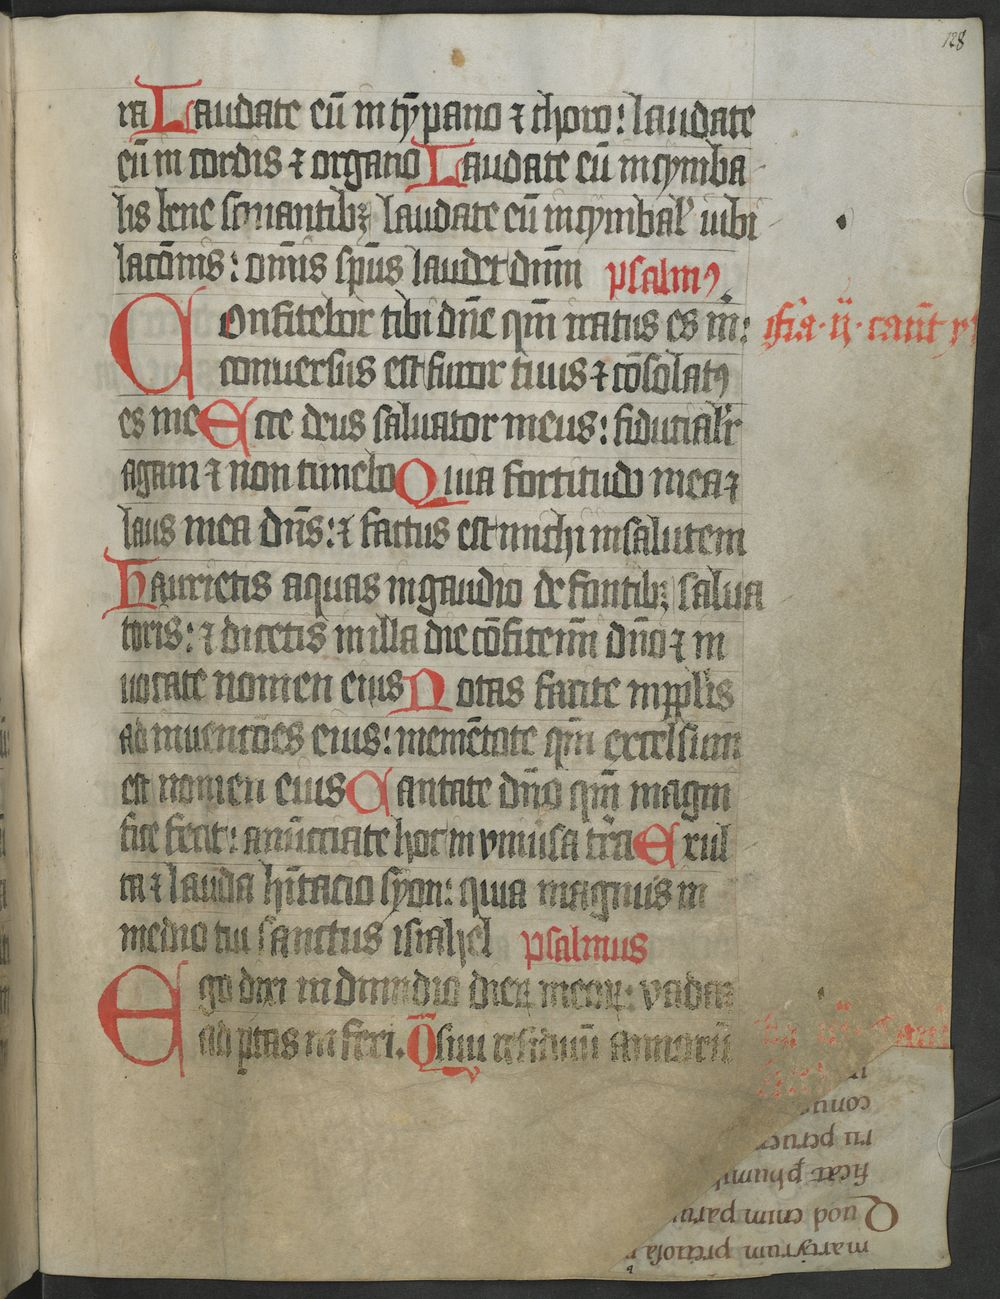 128
ra Laudate eū in tȳpano ⁊ choro: laudate
eū in cordis ⁊ organo Laudate eū in cymba
lis bene sonantibꝫ laudate eū in cymbal' iubi
lacōnis: omīs sp̄us laudet dn̄m psalmꝰ
Confitebor tibi dn̄e qm̄ iratus es m:
fr̄ia · ij · cant
conuersus est furor tuus ⁊ cōsolatꝰ
es me Ecce deus saluator meus: fiducialr'
agam ⁊ non timebo Quia fortitudo mea ⁊
laus mea dn̄s: ⁊ factus est michi in salutem
Haurietis aquas in gaudio de fontibꝫ salua
toris: ⁊ dicetis in illa die cōfitemī dn̄o ⁊ in
uocate nomen eius Notas facite in ppl̄is
ad inuencōes eius: memētote qm̄ excelsum
est nomen eius Cantate dn̄o qm̄ magni
fice fecit: anūcciate hoc in vniuersa tr̄a Exul
ta ⁊ lauda hītacio syon: quia magnus in
medio tui sanctus israhel psalmus
Ego dixi in dimidio dieꝝ meoꝝ: vadaꝫ
ad ꝑtas inferi. Q̄siui residuū annoꝝ
martyrum preciosa
Quod enim patrum
ficat phumil
ru peruen
conuer